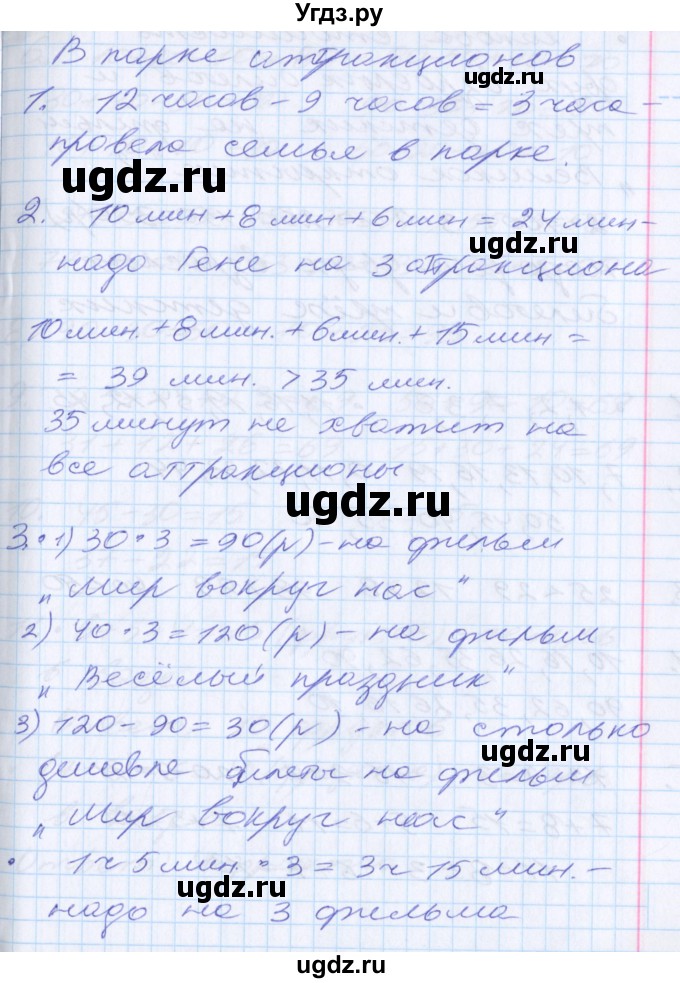 Угдз.ру
В парке аттракционов
1. 12 часов - 9 часов = 3 часа -
провела семья в парке.
2. 10 мин + 8 мин + 6 мин = 24 мин -
надо Гене на 3 аттракциона
10 мин. + 8 мин. + 6 мин. + 15 мин =
= 39 мин. > 35 мин.
35 минут не хватит на
все аттракционы
3. 1) 30 · 3 = 90 (р) - на фильм
„Мир вокруг нас“
2) 40 · 3 = 120 (р) - на фильм
„Весёлый праздник“
3) 120 - 90 = 30 (р) - на столько
дешевле билеты на фильм
„Мир вокруг нас“
• 1 ч 5 мин · 3 = 3 ч 15 мин. -
надо на 3 фильма
ugdz.ru
ugdz.ru
ugdz.ru
ugdz.ru
ugdz.ru
ugdz.ru
ugdz.ru
ugdz.ru
ugdz.ru